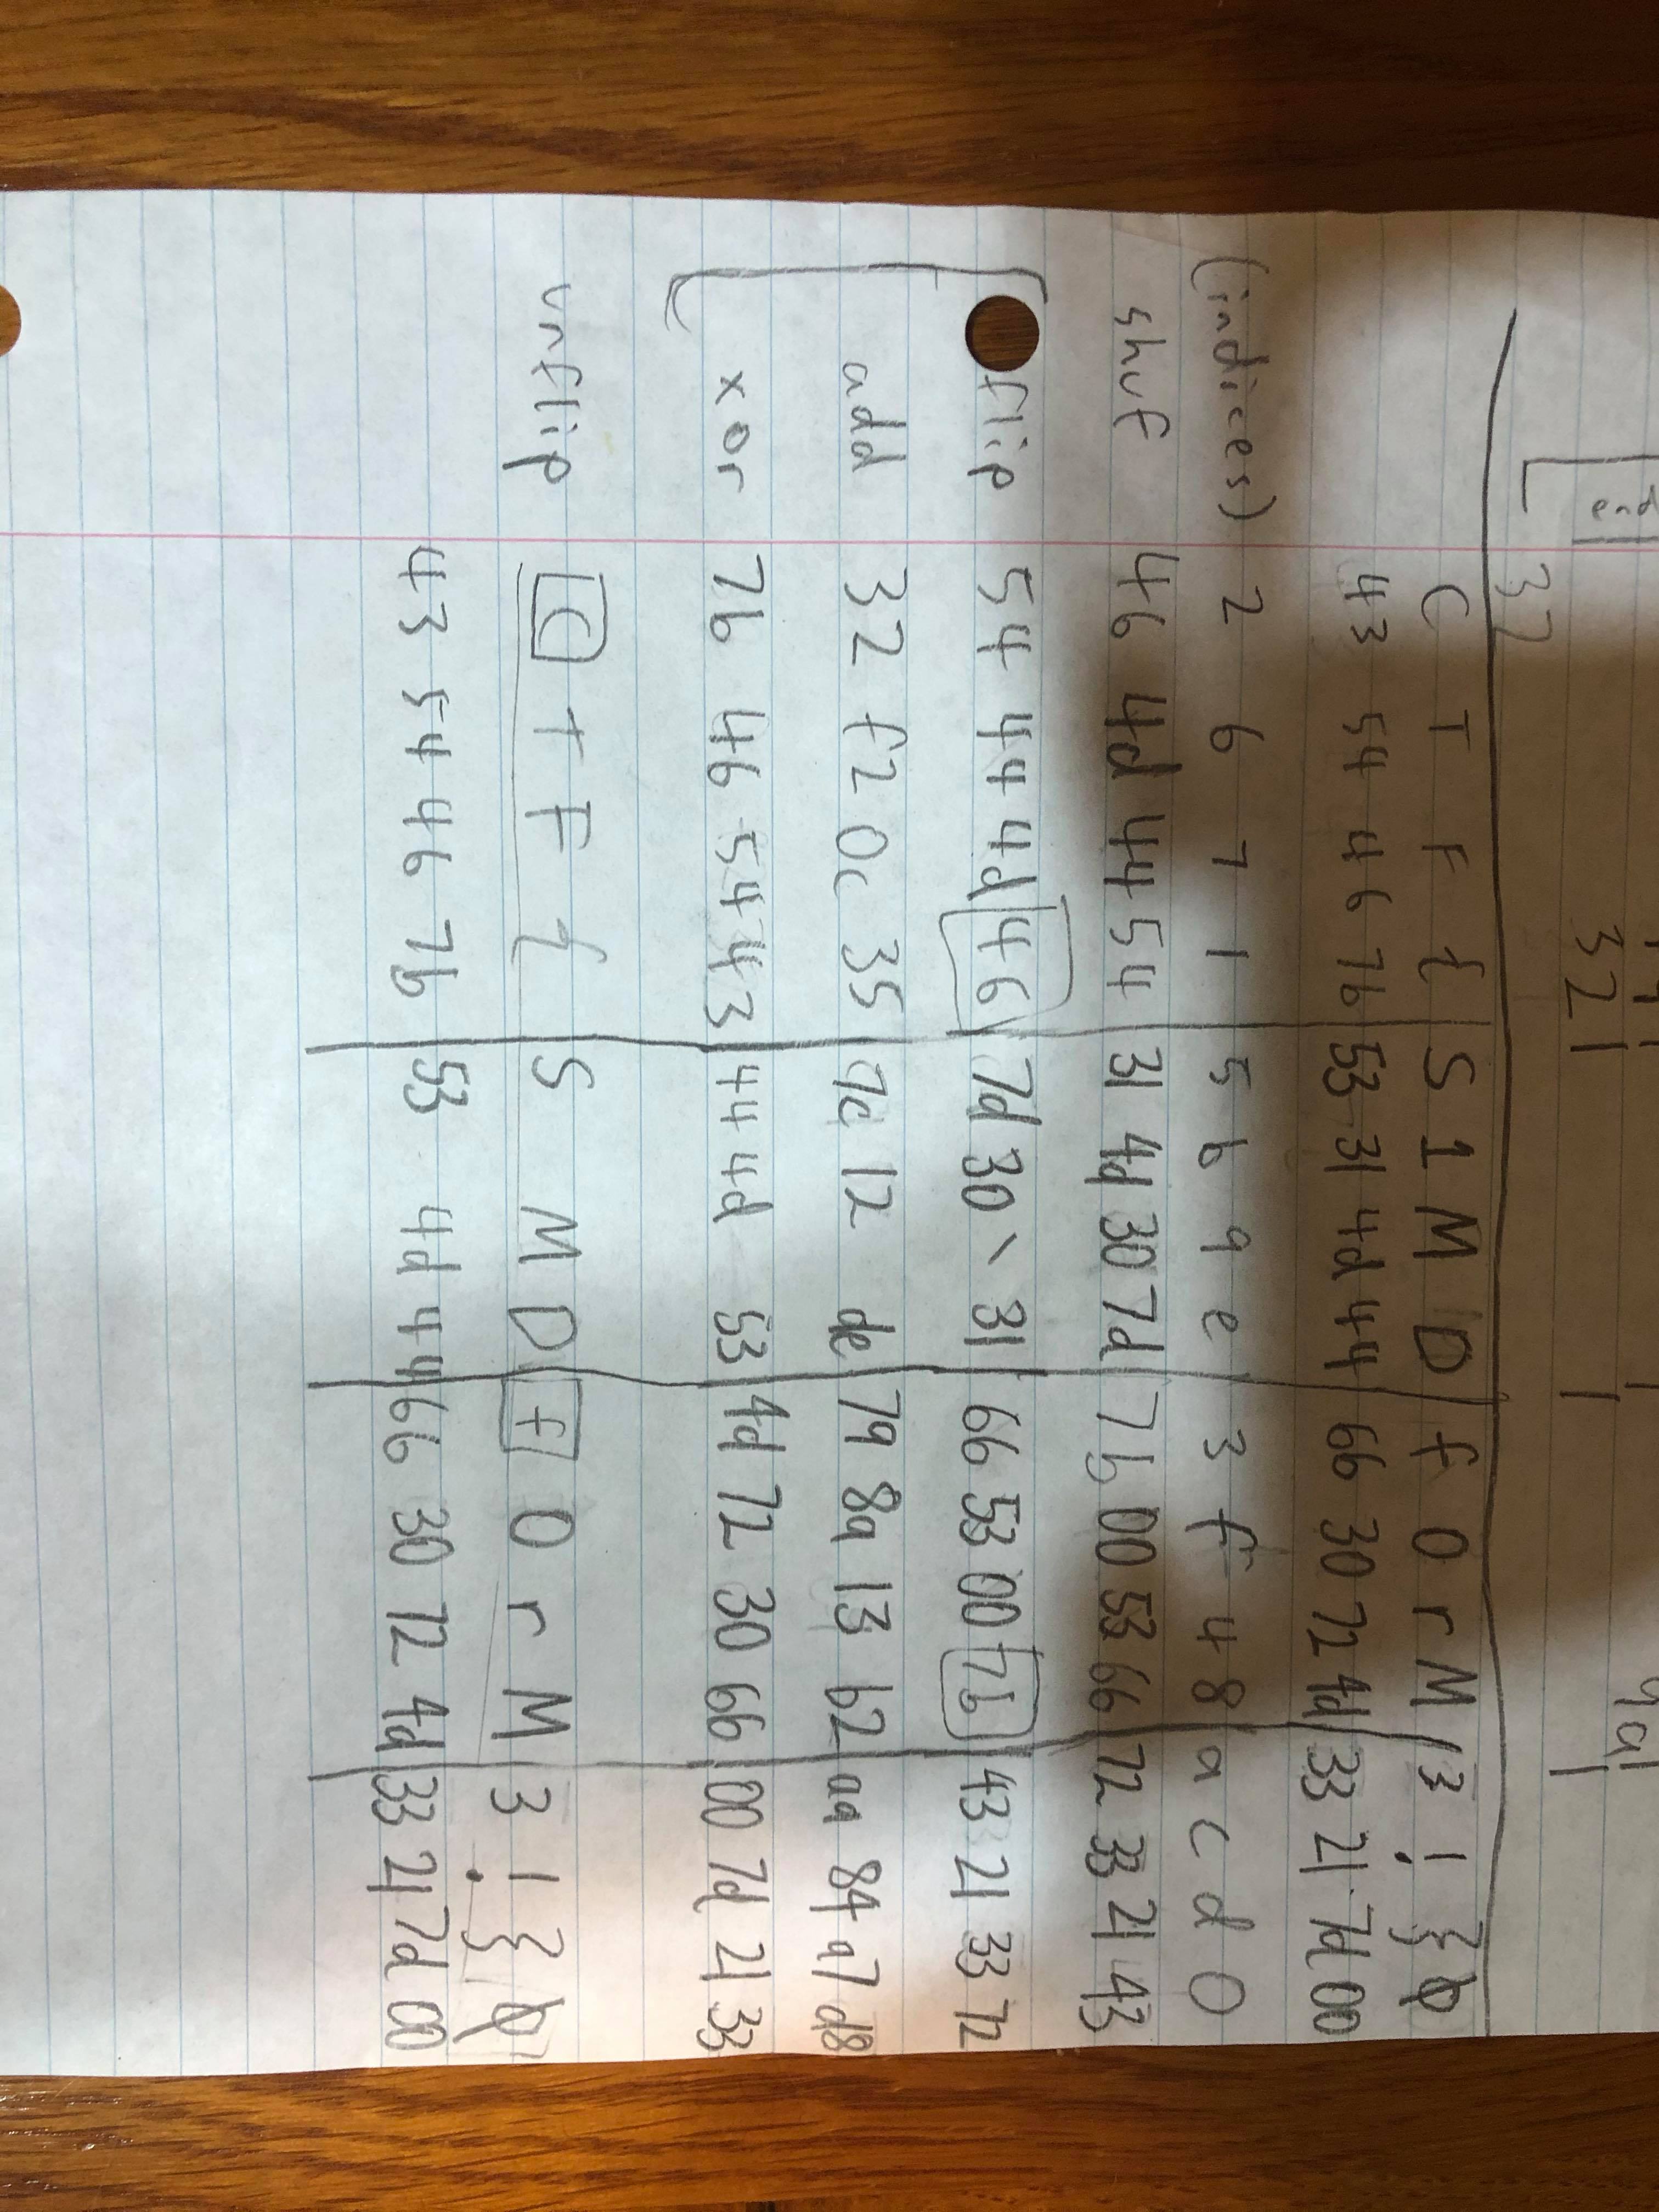 end
32 | | 9a|
37
C T F { | S 1 M D | f 0 r M | 3 ! } 0
43 54 46 7b | 53 31 4d 44 | 66 30 72 4d | 33 21 7d 00
(indices) 2 6 7 1 | 5 b 9 e | 3 f 4 8 | a c d 0
shuf 46 4d 44 54 | 31 4d 30 7d | 7b 00 53 66 | 72 33 21 43
flip 54 44 4d 46 | 7d 30 \ 31 | 66 53 00 7b | 43 21 33 72
add 32 f2 0c 35 | 7c 12 de | 79 8a 13 b2 | aa 84 a7 d8
xor 7b 46 54 43 | 44 4d 53 | 4d 72 30 66 | 00 7d 21 33
unflip C T F { | S M D | f 0 r M | 3 ! } 0
43 54 46 7b | 53 4d 44 | 66 30 72 4d | 33 21 7d 00